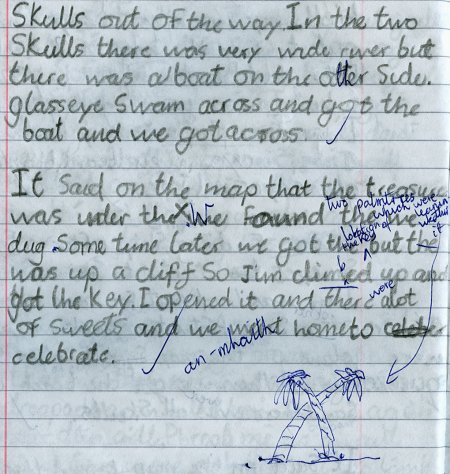 Skulls out of the way. In the two
Skulls there was very wide river but
there was a boat on the otter Side.
glasseye Swam across and got the
boat and we got across
It Said on the map that the treasure
was under the X. We Found the
dug. Some time Later we got the but the
was up a cliff So Jim climed up and
got the Key. I opened it and there alot
of Sweets and we went home to
celebrate.
two palmtrees
which were
were
an-mhaith